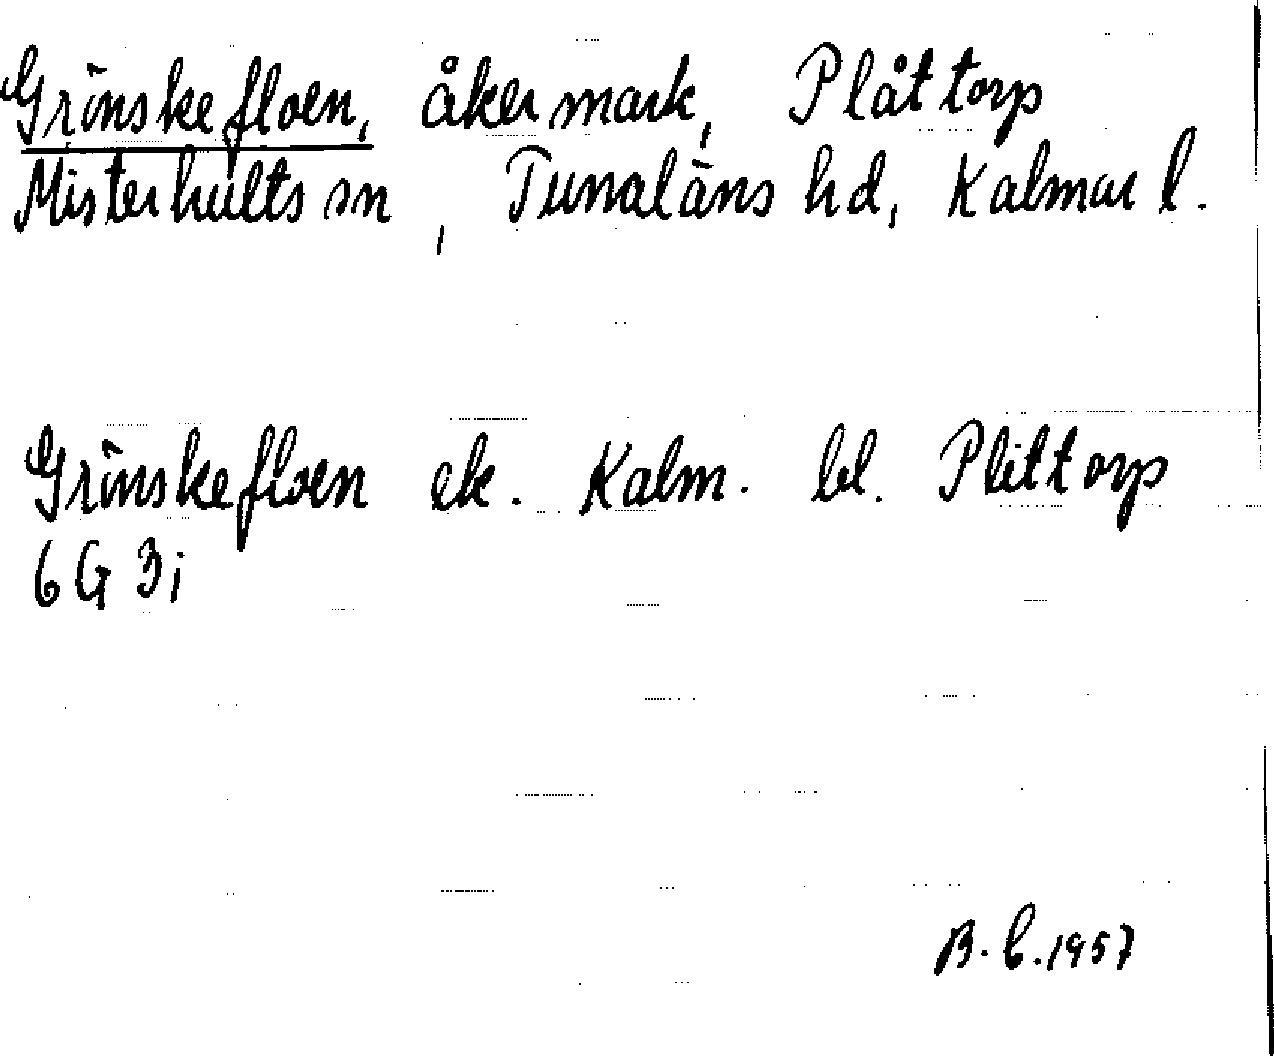 Grönskefloen, åkermark, Plåttorp
Misterhults sn, Tunaläns hd, Kalmar l.
Grönskefloen ek. Kalm. bl. Plittorp
6G 3i
B.C.1957